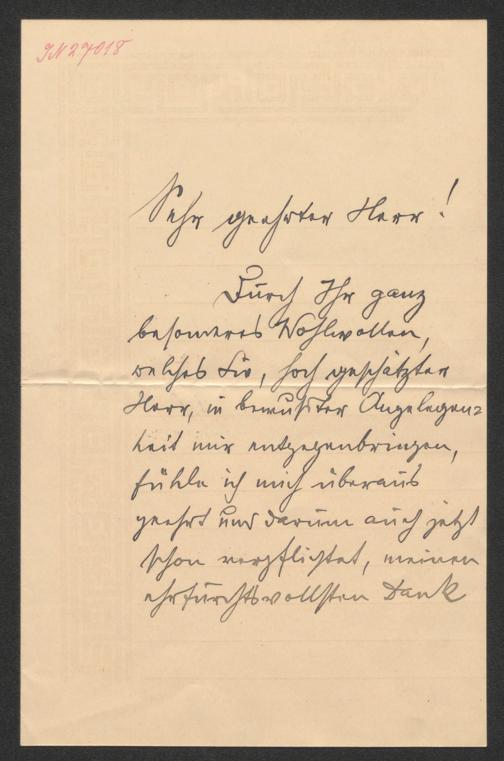 IN 27018
Sehr geehrter Herr!
Durch Ihr ganz
besonderes Wohlwollen,
welches Sie, hoch geschätzter
Herr, in bewußter Angelegen=
heit mir entgegenbringen,
fühle ich mich überaus
geehrt und darum auch jetzt
schon verpflichtet, meinen
ehrfurchtsvollsten Dank